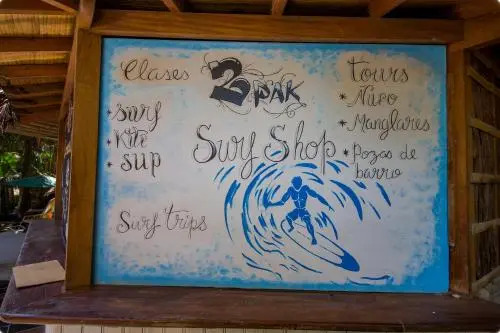 Clases
* surf
* Kite
* SUP
2 PAK
Surf Shop
Surf Trips
tours
* Nuro
* Manglares
* Pozas de
barro